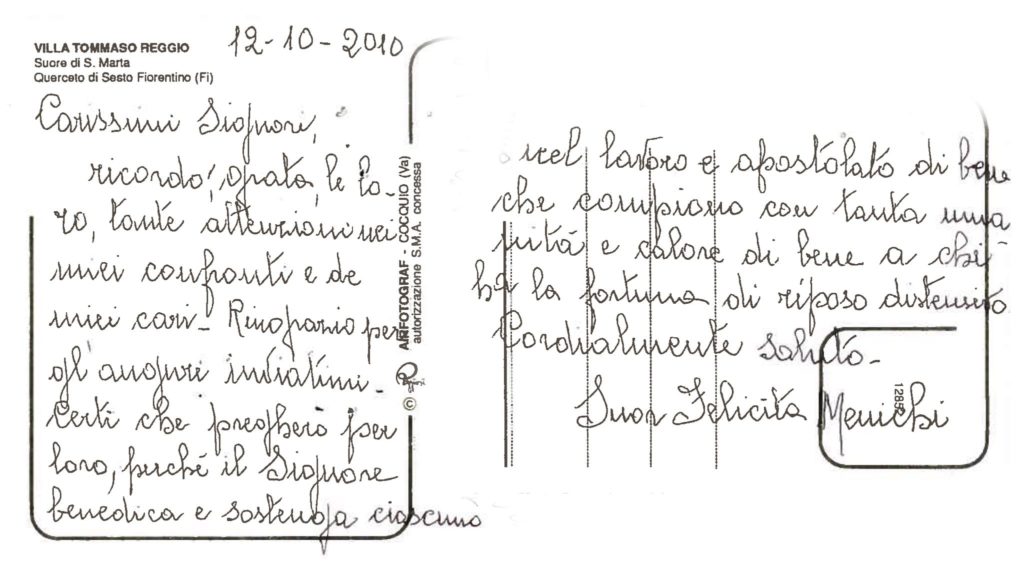 VILLA TOMMASO REGGIO
Suore di S. Marta
Querceto di Sesto Fiorentino (Fi)
12-10-2010
Carissimi Signori,
ricordo, grata, le lo-
ro, tante attenzioni nei
miei confronti e de
miei cari- Ringrazio per
gl'auguri inviatimi-
Certi che pregherò per
loro, perché il Signore
benedica e sostenga ciascuno
AIRFOTOGRAF - COCQUIO (Va)
autorizzazione S.M.A. concessa
©
nel lavoro e apostolato di bene
che compiono con tanta uma
nità e calore di bene a chi
ha la fortuna di riposo distensivo
Cordialmente saluto-
Suor Felicita Menichi